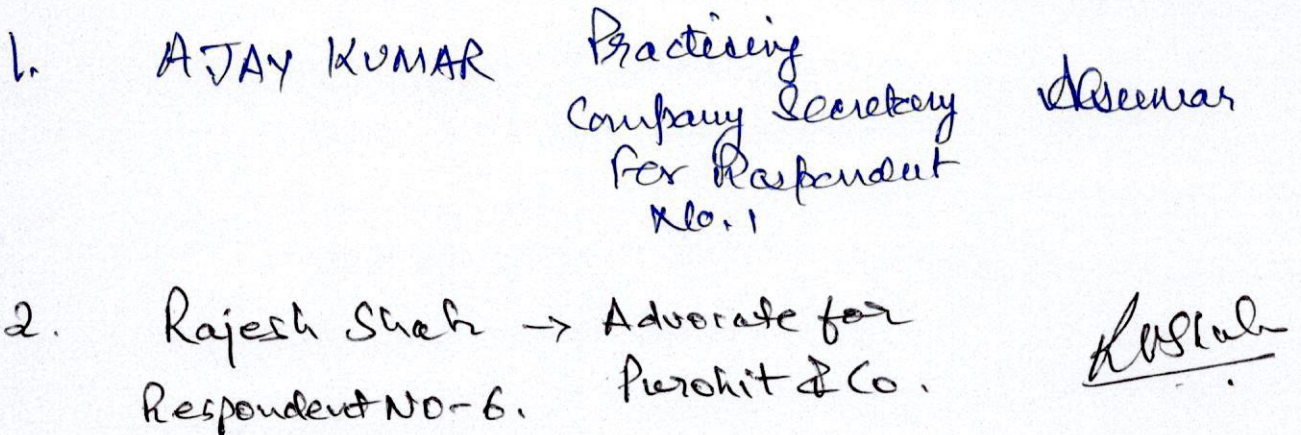 1. AJAY KUMAR Practising
Company Secretary
For Respondent
No. 1
2. Rajesh Shah → Advocate for
Respondent NO-6. Purohit & Co.